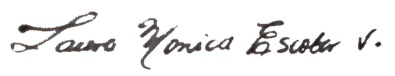 Laura Monica Escobar V.